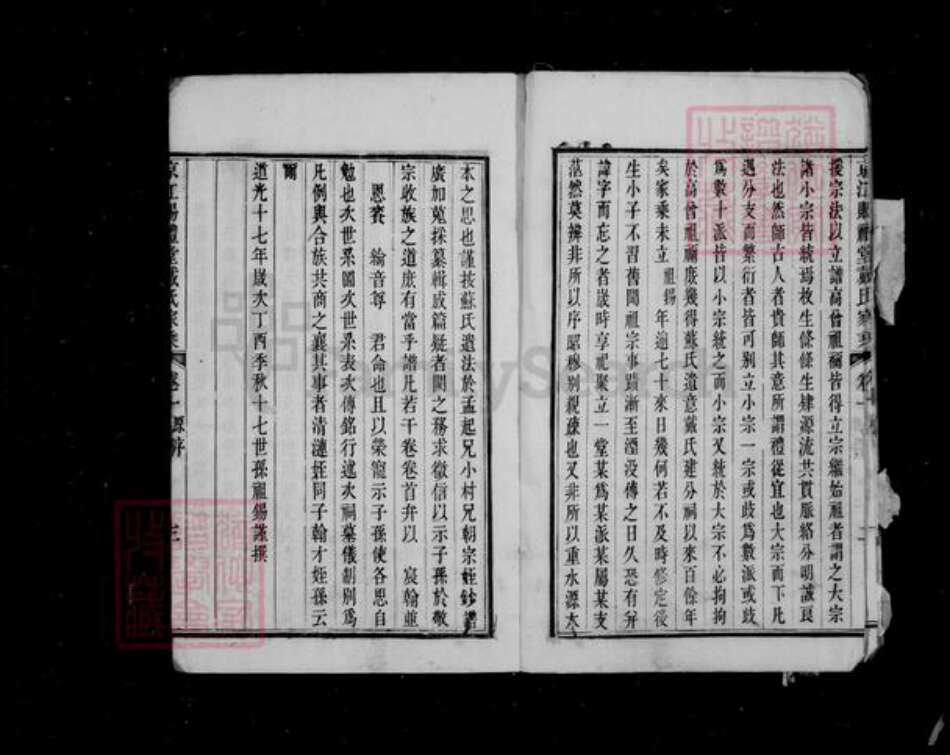 援宗法以立譜高曾祖禰皆得立宗繼始祖者謂之大宗
諸小宗皆統焉枚生條條生肄源流共貫脈絡分明誠良
法也然師古人者貴師其意所謂禮從宜也大宗而下凡
遇分支而繁衍者皆可别立小宗一宗或歧爲數派或歧
爲數十派皆以小宗統之而小宗又統於大宗不必拘拘
於高曾祖禰庶幾得蘇氏遺意戴氏建分祠以來百餘年
矣家乘未立 祖錫 年逾七十來日幾何若不及時修定後
生小子不習舊聞祖宗事蹟漸至湮没傳之日久恐有名
諱字而忘之者歲時享祀聚立一堂某爲某派某屬某支
茫然莫辨非所以序昭穆别親疎也又非所以重水源木
本之思也謹按蘇氏遺法於孟起兄小村兄朝宗姪鈔譜
廣加蒐採纂輯成篇疑者闕之務求徵信以示子孫於敬
宗收族之道庶有當乎譜凡若干卷卷首弁以 宸翰並
恩賚 綸音尊 君命也且以榮寵示子孫使各思自
勉也次世系圖次世系表次傳銘行述次祠墓儀制别爲
凡例與合族共商之襄其事者清漣姪同子翰才姪孫云
爾
道光十七年歲次丁酉季秋十七世孫祖錫謹撰
京江賜禮堂戴氏家乘 卷一 源
三